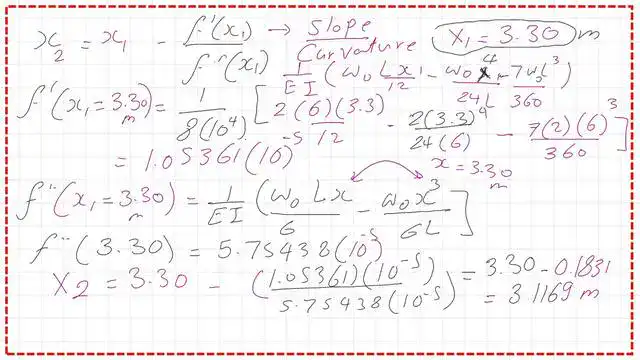 x₂ = x₁ - f'(x₁)/f''(x₁) → Slope/Curvature X₁ = 3.30 m
1/EI (w₀Lx²/12 - w₀x⁴/24L - 7w₀L³/360)
f'(x₁=3.30) m = 1/8(10⁴) [2(6)(3.3)/12 - 2(3.3)⁴/24(6) - 7(2)(6)³/360]
= 1.05361(10)⁻⁵ x=3.30 m
f''(x₁=3.30) m = 1/EI (w₀Lx/6 - w₀x³/6L]
f''(3.30) = 5.75438(10⁻⁵)
X₂ = 3.30 - (1.05361)(10⁻⁵)/5.75438(10⁻⁵) = 3.30 - 0.1831
= 3.1169 m